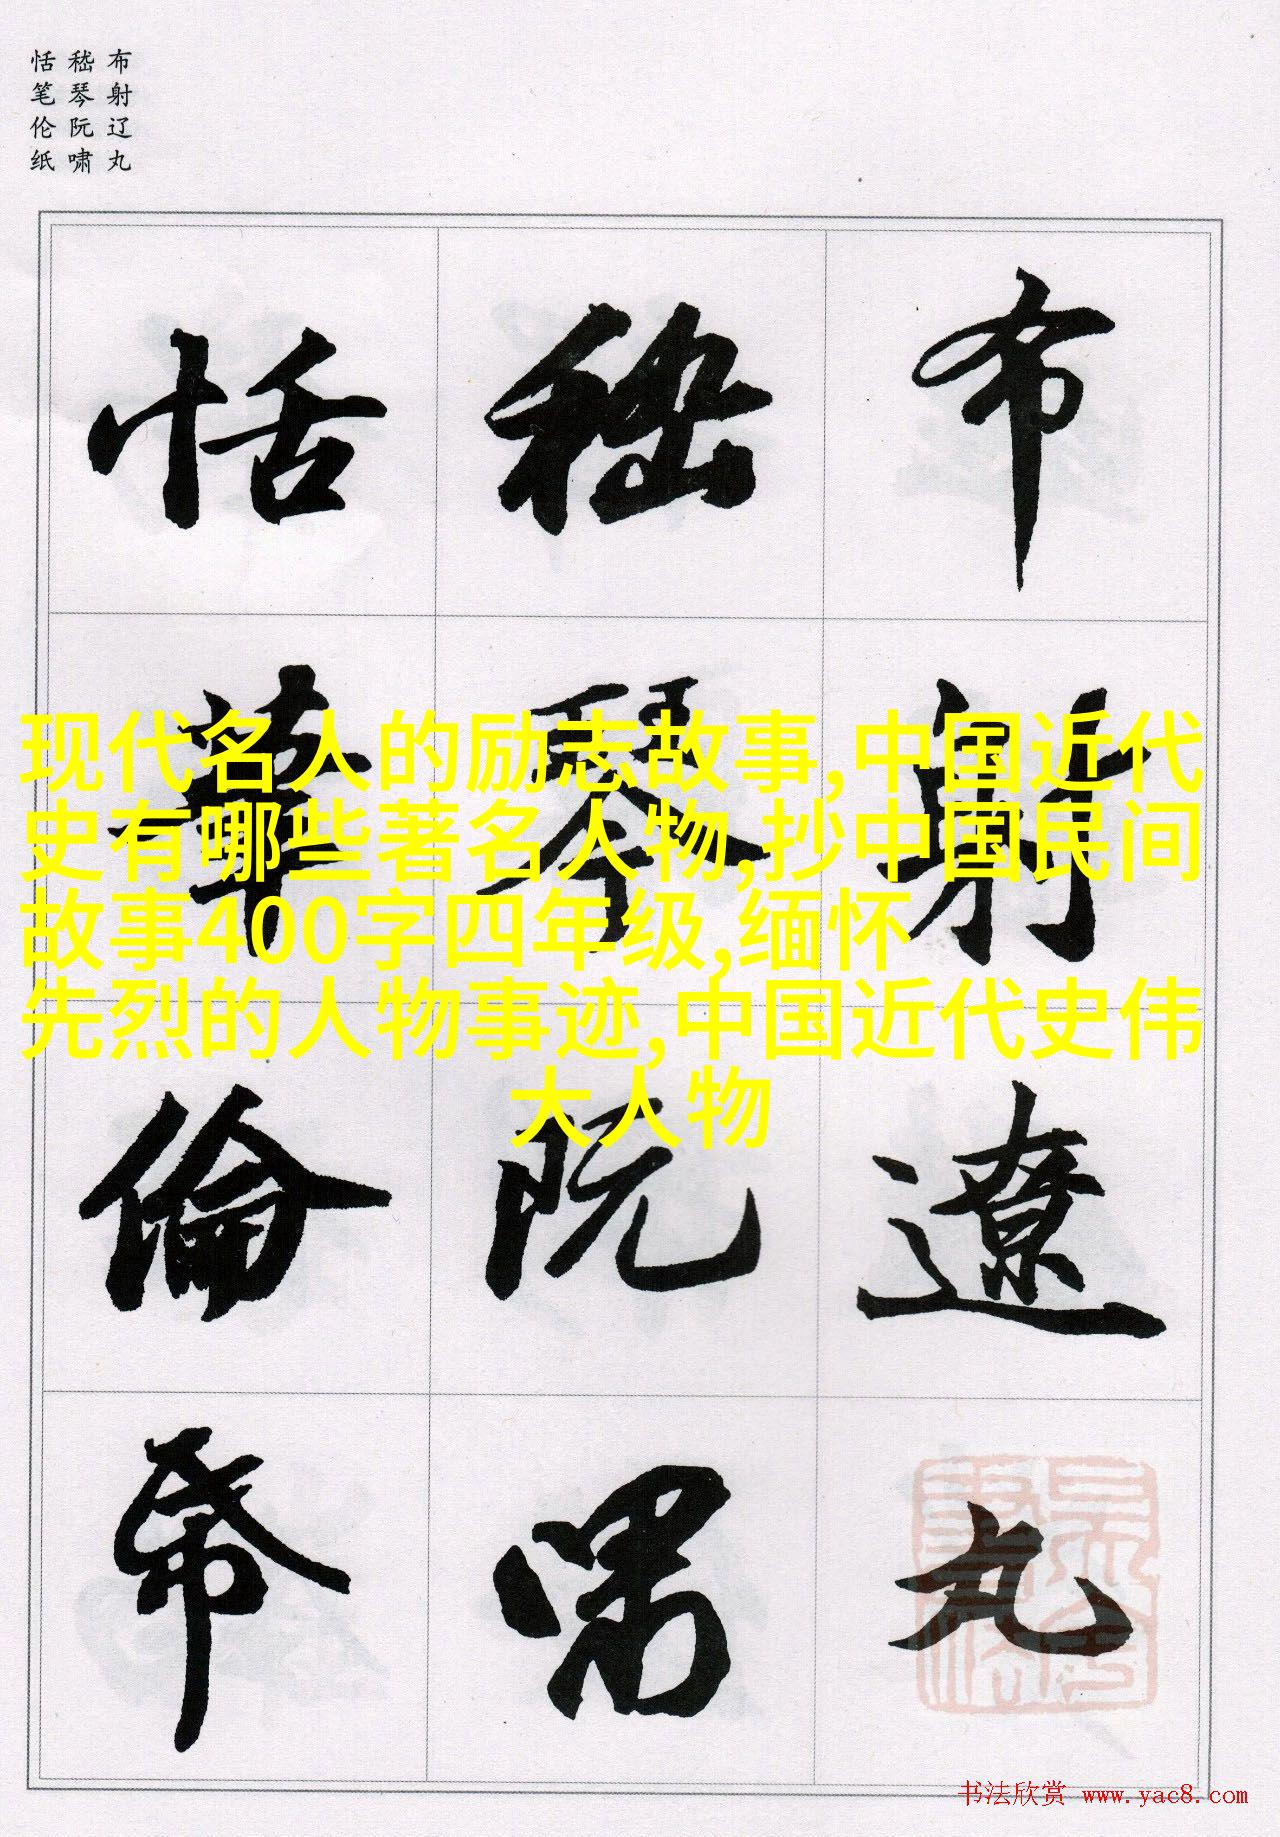 布射辽丸
嵇琴阮啸
恬笔伦纸
布射遼丸
嵇琴阮嘯
恬筆倫帋
现代名人的励志故事,中国近代
史有哪些著名人物,抄中国民间
故事400字四年级,缅怀
先烈的人物事迹,中国近代史伟
大人物
书法欣赏 www.yac8.com